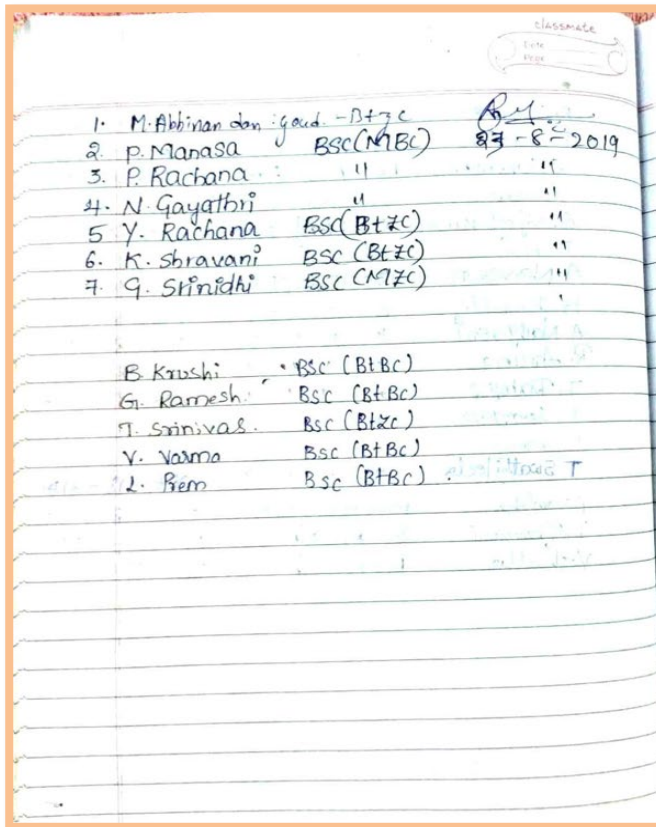 classmate
Date
Page
1. M. Abhinan dan goud - Btzc
2. P. Manasa BSC(MBC) 27-8-2019
3. P. Rachana " "
4. N. Gayathri " "
5 Y. Rachana BSC(BtZC) "
6. K. Shravani BSC (BtZC) "
7. G. Srinidhi BSC (MZC) "
B. Krushi BSC (BtBC)
G. Ramesh BSC (BtBC)
T. Srinivas. BSC (Btzc)
V. Varma BSC (BtBC)
L. Prem BSC (BtBC)